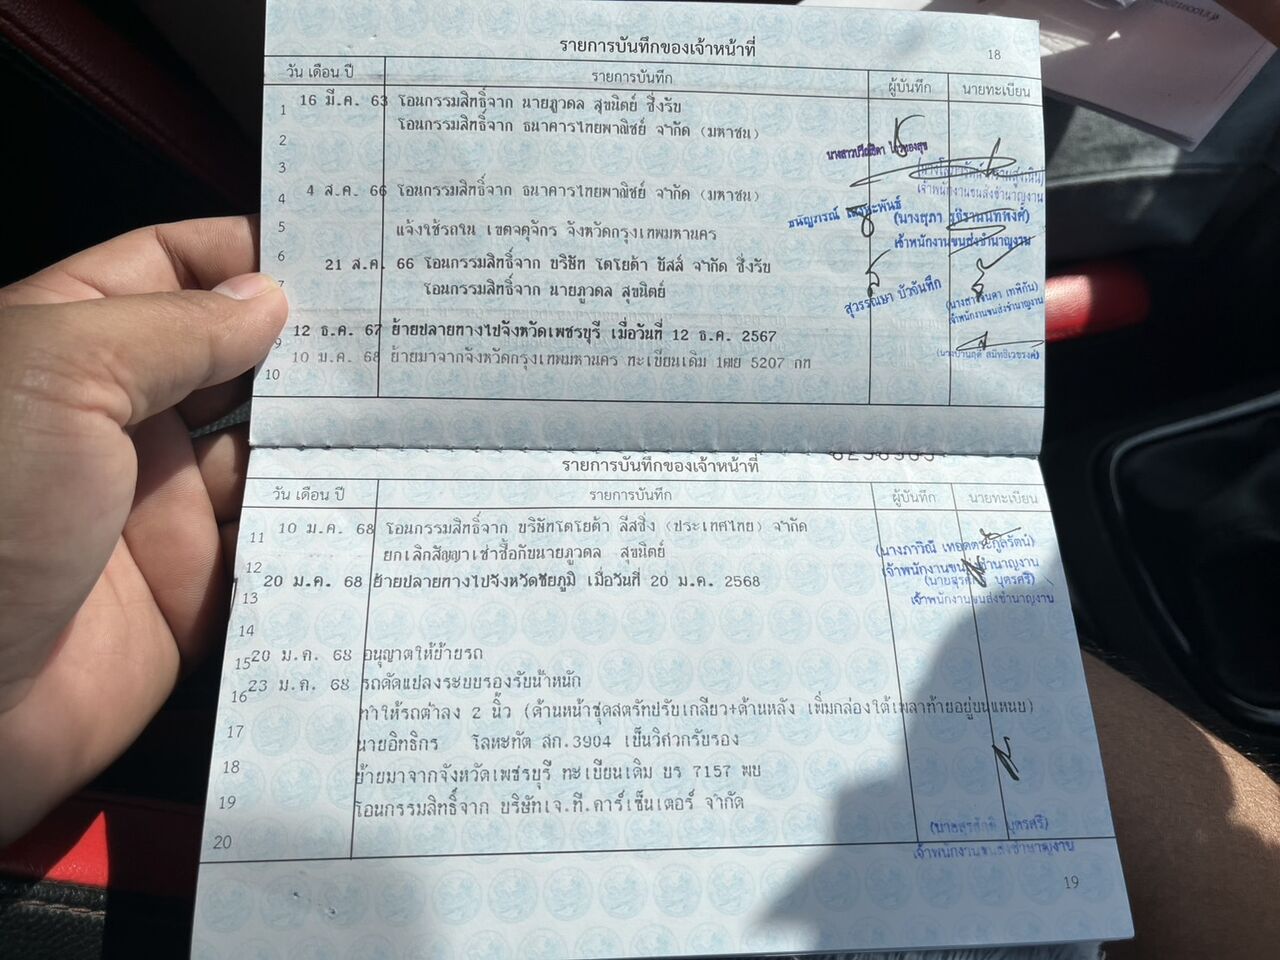 รายการบันทึกของเจ้าหน้าที่ 18
วัน เดือน ปี รายการบันทึก ผู้บันทึก นายทะเบียน
1 16 มี.ค. 63 โอนกรรมสิทธิ์จาก นายภูวดล สุขนิตย์ ซึ่งรับ
2 โอนกรรมสิทธิ์จาก ธนาคารไทยพาณิชย์ จำกัด (มหาชน)
3
4 4 ส.ค. 66 โอนกรรมสิทธิ์จาก ธนาคารไทยพาณิชย์ จำกัด (มหาชน)
เจ้าพนักงานขนส่งชำนาญงาน
5 แจ้งใช้รถใน เขตจตุจักร จังหวัดกรุงเทพมหานคร
เจ้าพนักงานขนส่งชำนาญงาน
6 21 ส.ค. 66 โอนกรรมสิทธิ์จาก บริษัท โตโยต้า บัสส์ จำกัด ซึ่งรับ
7 โอนกรรมสิทธิ์จาก นายภูวดล สุขนิตย์ สุวรรณษา บัวจันทึก
เจ้าพนักงานขนส่งชำนาญงาน
12 ธ.ค. 67 ย้ายปลายทางไปจังหวัดเพชรบุรี เมื่อวันที่ 12 ธ.ค. 2567
9 10 ม.ค. 68 ย้ายมาจากจังหวัดกรุงเทพมหานคร ทะเบียนเดิม 1ฒย 5207 กท
10
รายการบันทึกของเจ้าหน้าที่
วัน เดือน ปี รายการบันทึก ผู้บันทึก นายทะเบียน
11 10 ม.ค. 68 โอนกรรมสิทธิ์จาก บริษัทโตโยต้า ลีสซิ่ง (ประเทศไทย) จำกัด
12 ยกเลิกสัญญาเช่าซื้อกับนายภูวดล สุขนิตย์
เจ้าพนักงานขนส่งชำนาญงาน
13 20 ม.ค. 68 ย้ายปลายทางไปจังหวัดชัยภูมิ เมื่อวันที่ 20 ม.ค. 2568
เจ้าพนักงานขนส่งชำนาญงาน
14
15 20 ม.ค. 68 อนุญาตให้ย้ายรถ
16 23 ม.ค. 68 รถดัดแปลงระบบรองรับน้ำหนัก
17 ทำให้รถต่ำลง 2 นิ้ว (ด้านหน้าชุดสตรัทปรับเกลียว+ด้านหลัง เพิ่มกล่องใต้เพลาท้ายอยู่บนแหนบ)
18 นายอิทธิกร โลหะทัด สก.3904 เป็นวิศวกรรับรอง
19 ย้ายมาจากจังหวัดเพชรบุรี ทะเบียนเดิม บร 7157 พบ
20 โอนกรรมสิทธิ์จาก บริษัทเจ.ที.คาร์เซ็นเตอร์ จำกัด
(นายสุรศักดิ์ บุตรศรี)
เจ้าพนักงานขนส่งชำนาญงาน
19